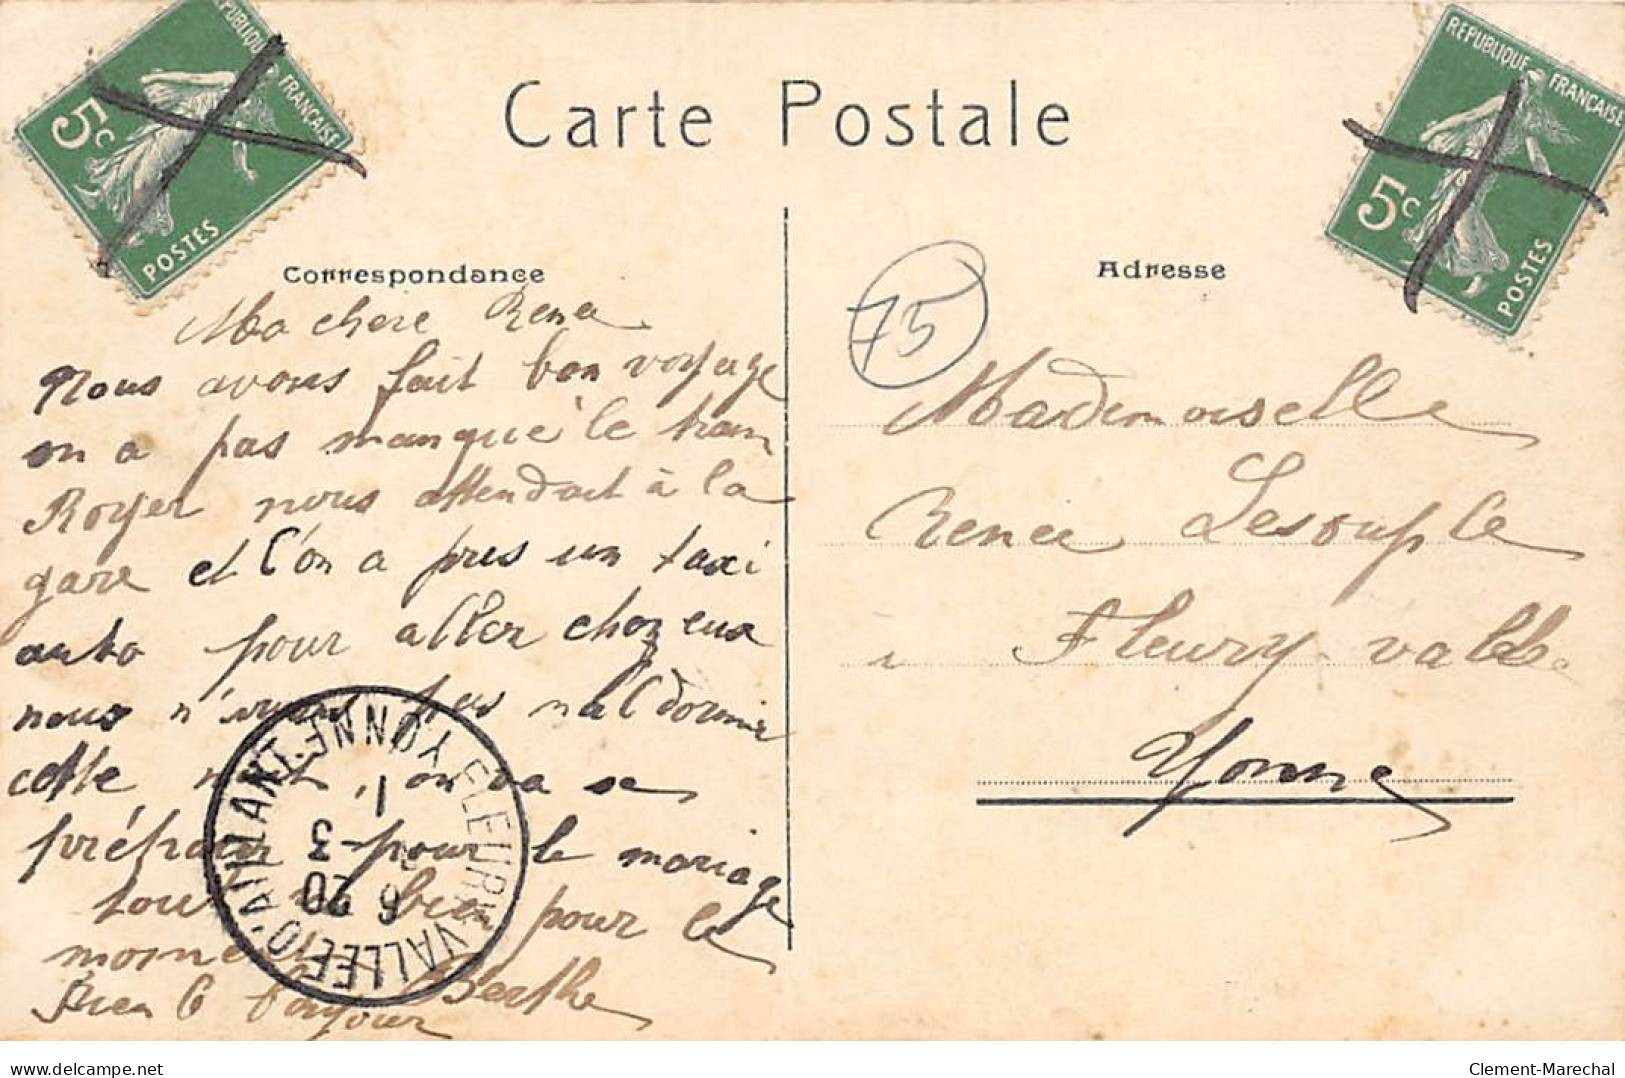 RÉPUBLIQUE FRANÇAISE
5c
POSTES
Carte Postale
RÉPUBLIQUE FRANÇAISE
5c
POSTES
Correspondance
Ma chere Renee
Nous avons fait bon voyage
on a pas manqué le train
Royer nous attendait à la
gare et l'on a pris un taxi
auto pour aller chez eux
nous n'avons pas mal dormir
cette nuit, on va se
préparer pour le mariage
tout va bien pour le
moment
Bien le bonjour Berthe
FLEURY-VALLÉE D'AILLANT YONNE
1
6 -3
20
Adresse
75
Mademoiselle
Renee Lesouple
à Fleury-vallée
Yonne
delcampe.net
Clement-Marechal